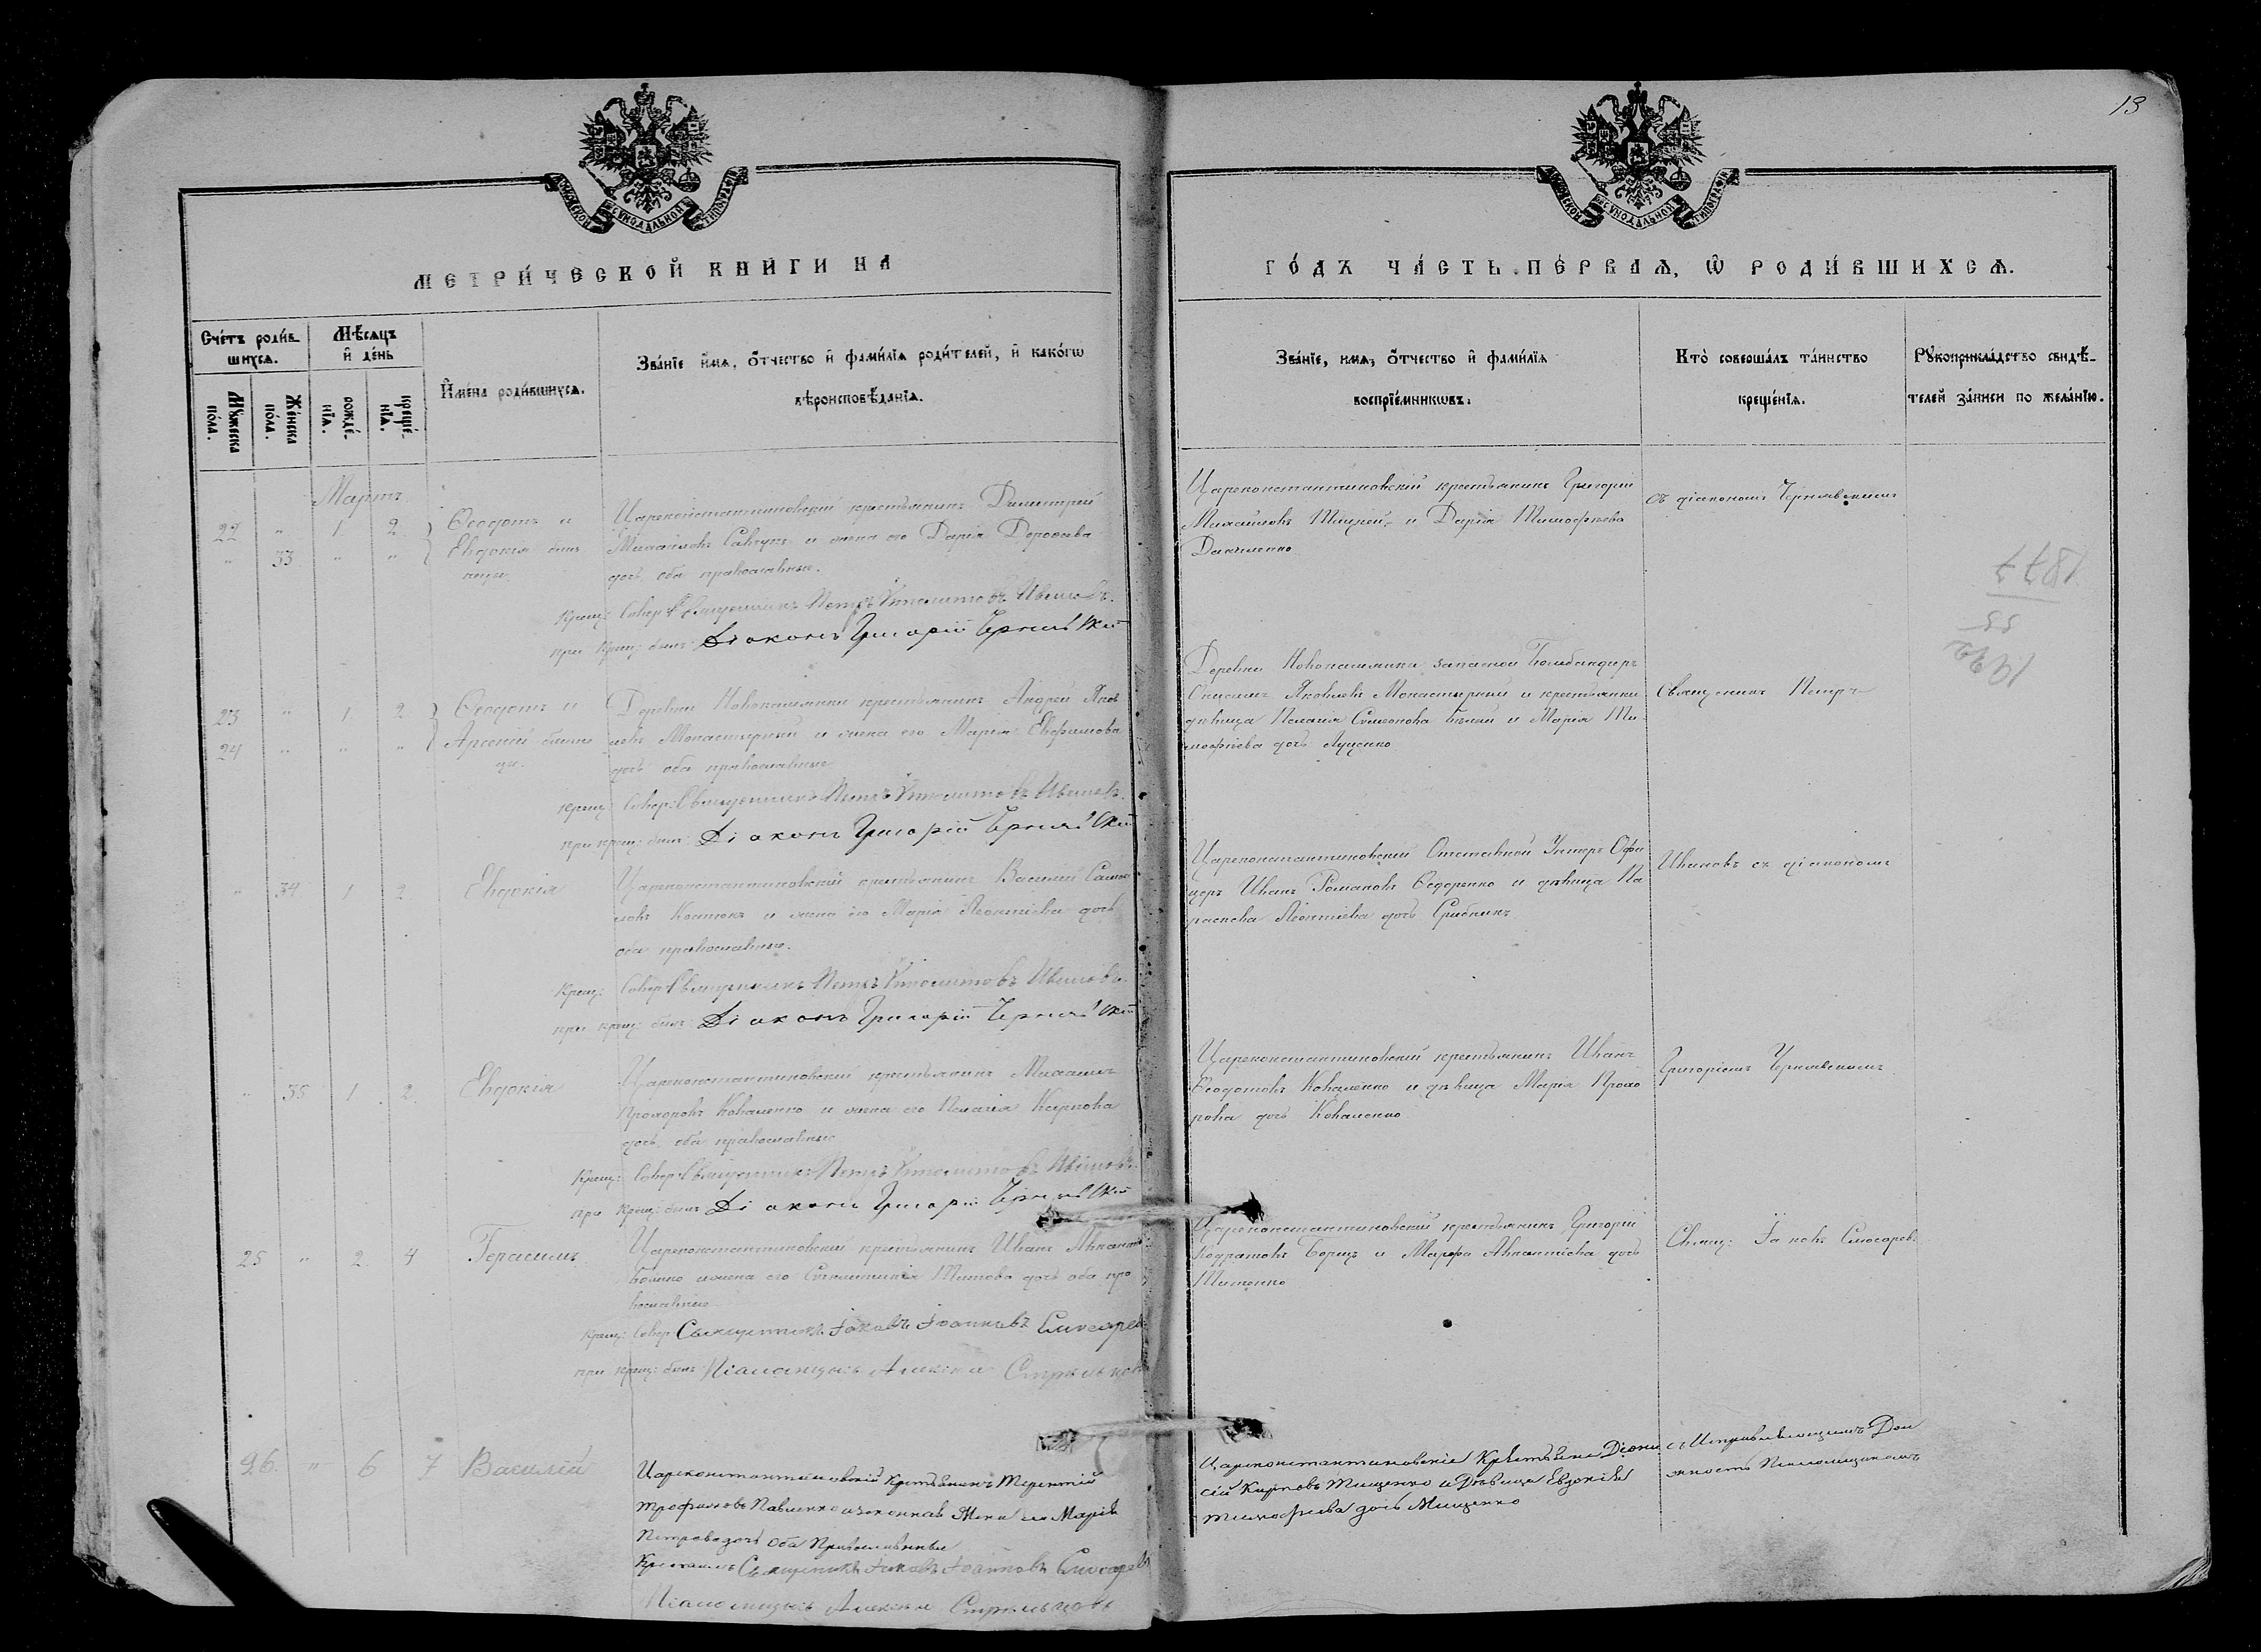 13
МОСКОВСКОЙ СѴНОДАЛЬНОЙ ТИПОГРАФІИ
МОСКОВСКОЙ СѴНОДАЛЬНОЙ ТИПОГРАФІИ
МЕТРИ́ЧЕСКОЙ КНИ́ГИ НА
ГО́ДЪ ЧА́СТЬ ПЕ́РВАѦ, Ѡ҆ РОДИ́ВШИХСѦ.
Сче́тъ роди́в-
шихсѧ.
Мꙋ́жеска по́ла.
Же́нска по́ла.
Мѣ́сѧцъ
и҆ де́нь
рожде́-
нїѧ.
креще́-
нїѧ.
И҆мена̀ роди́вшихсѧ.
Зва́нїе и҆́мѧ, ѻ҆́тчество и҆ фами́лїѧ роди́телей, и҆ како́гѡ
вѣроисповѣ́данїѧ.
Зва́нїе, и҆́мѧ, ѻ҆́тчество и҆ фами́лїѧ
воспрїе́мникѡвъ.
Кто̀ соверша́лъ та́инство
креще́нїѧ.
Рꙋкоприкла́дство свидѣ́-
телей за́писи по жела́нїю.
Мартъ
22 " 1 2 Ѳеодотъ и
" 33 " " Евдокія близ
нецы.
Цареконстантиновскій крестьянинъ Димитрій
Михайловъ Савчукъ и жена его Дарія
дочь, оба православные.
Крещ: Совер: Священникъ Петръ Ипполитовъ Ивановъ.
при крещ: былъ: Діаконъ Григорій Чернявскій
Цареконстантиновскій крестьянинъ Григорій
Михайловъ и Дарія Тимофѣева
съ діакономъ Чернявскимъ
1877
55
1922
23 " 1 2 Ѳеодотъ и
24 " " " Арсеній близне
цы.
Деревни Новоселимки крестьянинъ Андрей Яков
левъ Монастырный и жена его Марія Евфимова
дочь оба православные
Крещ: Совер: Священникъ Петръ Ипполитовъ Ивановъ.
при крещ: былъ: Діаконъ Григорій Чернявскій
Деревни запасной Бомбандиръ
Яковлевъ Монастырный и крестьянки
дѣвица Пелагія Симеонова и Марія Ти
мофѣева дочь Луценко
Священникъ Петръ
" 34 1 2 Евдокія
Цареконстантиновскій крестьянинъ Василій
и жена его Марія Леонтіева дочь
оба православные.
Крещ: Совер: Священникъ Петръ Ипполитовъ Ивановъ.
при крещ: былъ: Діаконъ Григорій Чернявскій
Цареконстантиновскій Отставной Унтеръ Офи
церъ Иванъ Романовъ Ѳедоренко и дѣвица Па
раскева Леонтіева дочь
Ивановъ съ діакономъ
" 35 1 2 Евдокія
Цареконстантиновскій крестьянинъ Михаилъ
Прохоровъ Коваленко и жена его Пелагія Карпова
дочь, оба православные
Крещ: Совер: Священникъ Петръ Ипполитовъ Ивановъ.
при крещ: былъ Діаконъ Григорій Чернявскій
Цареконстантиновскій крестьянинъ Иванъ
Ѳеодотовъ Коваленко и дѣвица Марія Прохо
рова дочь Коваленко
Григоріемъ Чернявскимъ
25 " 2 4 Герасимъ
Цареконстантиновскій крестьянинъ Иванъ
и жена его Синклитикія Титова дочь оба пра
вославные
Крещ: Совер: Священникъ Іаковъ Іоанновъ Слюсарев
при крещ: былъ: Псаломщикъ Алексѣй Стрѣльцовъ
Цареконстантиновскій крестьянинъ Григорій
Кодратовъ Борщъ и Марфа дочь
Титенко
Свящ: Іаковъ Слюсарев
26. " 6 7 Василій
Цареконстантиновскій Крестьянинъ Терентій
Трофимовъ Павленко и законная Жена его Марія
Петрова дочь Оба Православные
Крестилъ Священникъ Іаковъ Іоанновъ Слюсарев
Псаломщикъ Алексѣй Стрѣльцовъ
Цареконстантиновскіе Крестьяне Діони
сій Карповъ Тищенко и Дѣвица Евдокія
Тимофеева дочь Тищенко
съ Исправляющимъ Дол
жность Псаломщикомъ